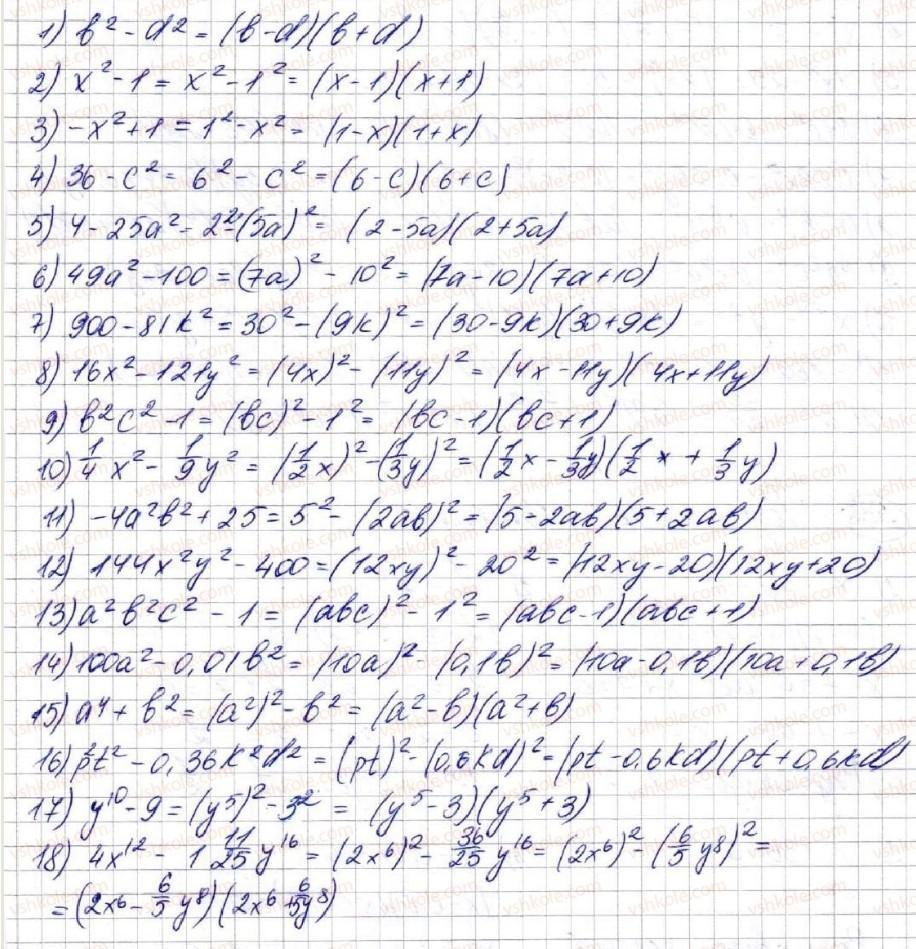 1) b² - d² = (b-d)(b+d)
2) x² - 1 = x² - 1² = (x-1)(x+1)
3) -x² + 1 = 1² - x² = (1-x)(1+x)
4) 36 - c² = 6² - c² = (6-c)(6+c)
5) 4 - 25a² = 2² - (5a)² = (2-5a)(2+5a)
6) 49a² - 100 = (7a)² - 10² = (7a-10)(7a+10)
7) 900 - 81k² = 30² - (9k)² = (30-9k)(30+9k)
8) 16x² - 121y² = (4x)² - (11y)² = (4x-11y)(4x+11y)
9) b²c² - 1 = (bc)² - 1² = (bc-1)(bc+1)
10) 1/4 x² - 1/9 y² = (1/2 x)² - (1/3 y)² = (1/2 x - 1/3 y)(1/2 x + 1/3 y)
11) -4a²b² + 25 = 5² - (2ab)² = (5-2ab)(5+2ab)
12) 144x²y² - 400 = (12xy)² - 20² = (12xy-20)(12xy+20)
13) a²b²c² - 1 = (abc)² - 1² = (abc-1)(abc+1)
14) 100a² - 0,01b² = (10a)² - (0,1b)² = (10a-0,1b)(10a+0,1b)
15) a⁴ + b² = (a²)² - b² = (a²-b)(a²+b)
16) p²t² - 0,36k²d² = (pt)² - (0,6kd)² = (pt-0,6kd)(pt+0,6kd)
17) y¹⁰ - 9 = (y⁵)² - 3² = (y⁵-3)(y⁵+3)
18) 4x¹² - 1 11/25 y¹⁶ = (2x⁶)² - 36/25 y¹⁶ = (2x⁶)² - (6/5 y⁸)² =
= (2x⁶ - 6/5 y⁸)(2x⁶ + 6/5 y⁸)